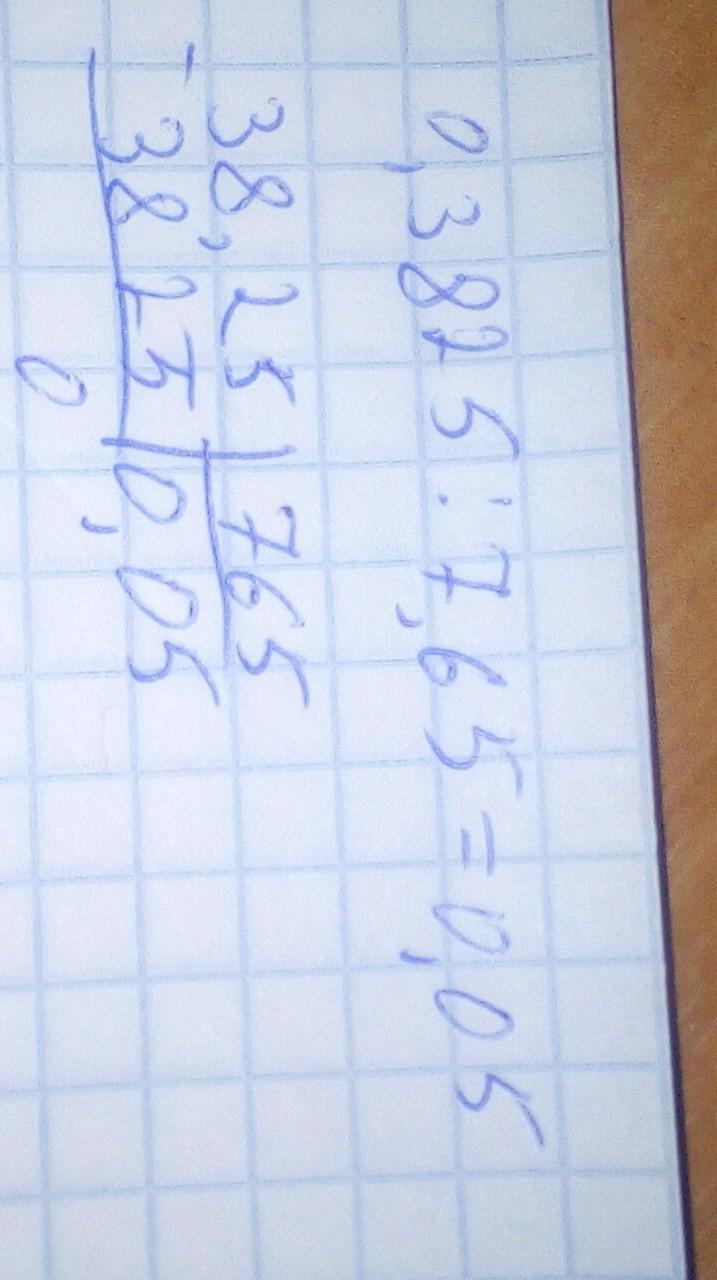 0,3825:7,65=0,05
38,25|765
-3825|0,05
0